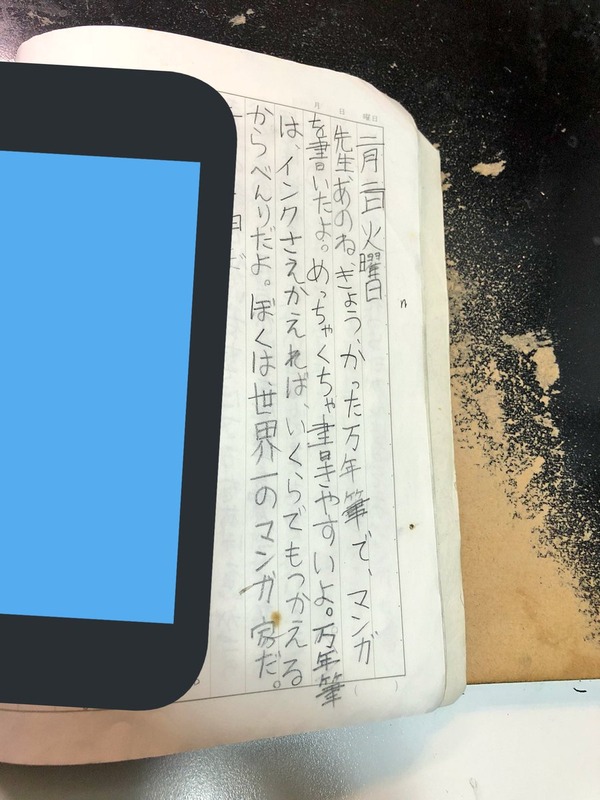 月 日 曜日
二月二日火曜日
先生あのね、きょう、かった万年筆で、マンガ
を書いたよ。めっちゃくちゃ書きやすいよ。万年筆
は、インクさえかえれば、いくらでもつかえる
からべんりだよ。ぼくは、世界一のマンガ家だ。